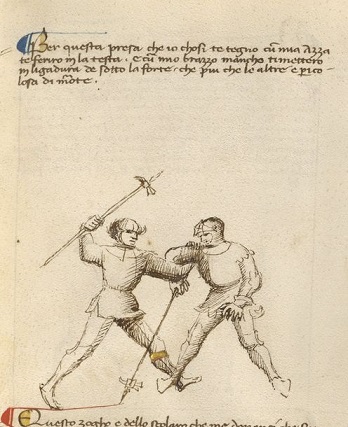 Per questa presa che io chosi te tegno cũ mia Azza
te feriro in la testa. e cũ mio brazzo mancho ti mettero
in ligadura de sotto la forte che piu che le altre e perico
losa di morte.
Questo zogho e dello scolaro che me